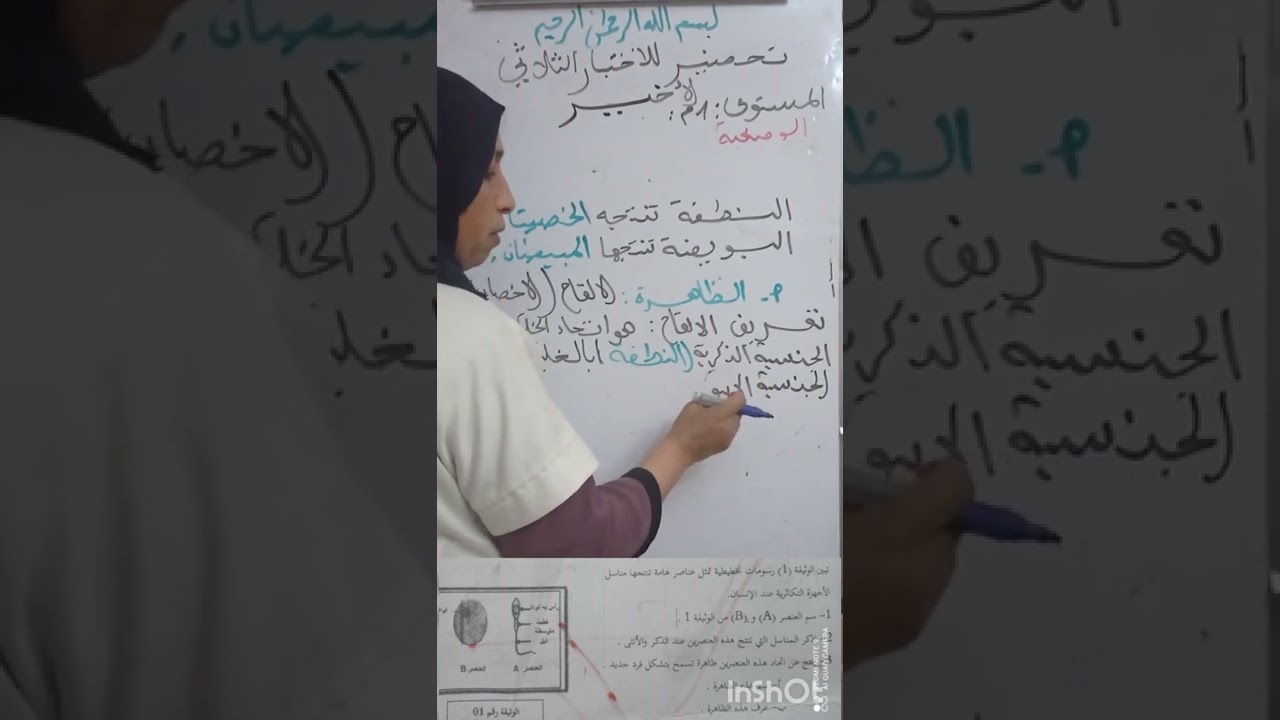 بسم الله الرحمن الرحيم
تحضير للاختبار الثلاثي
الأخير
المستوى: 4م
الوضعية
النطفة تنتجه الخصيتا
البويضة تنتجها المبيضان.
الظاهرة: الالقاح (الاخصا
تعريف الالقاح: هو اتحاد الخلـ
الجنسية الذكرية (النطفة) بالخلـ
الجنسية الانثو
تبين الوثيقة (1) رسومات تخطيطية تمثل عناصر هامة تنتجها مناسل
الأجهزة التكاثرية عند الإنسان.
1- سم العنصر (A) و (B) من الوثيقة 1 .
اذكر المناسل التي تنتج هذه العنصرين عند الذكر والأنثى .
ينتج عن اتحاد هذه العنصرين ظاهرة تسمح بتشكل فرد جديد .
هذه الظاهرة .
ب- عرف هذه الظاهرة .
قطعة
متوسطة
العنصر A
العنصر B
الوثيقة رقم 01
InShOt
REDMI NOTE
AI QUAD CAMERA